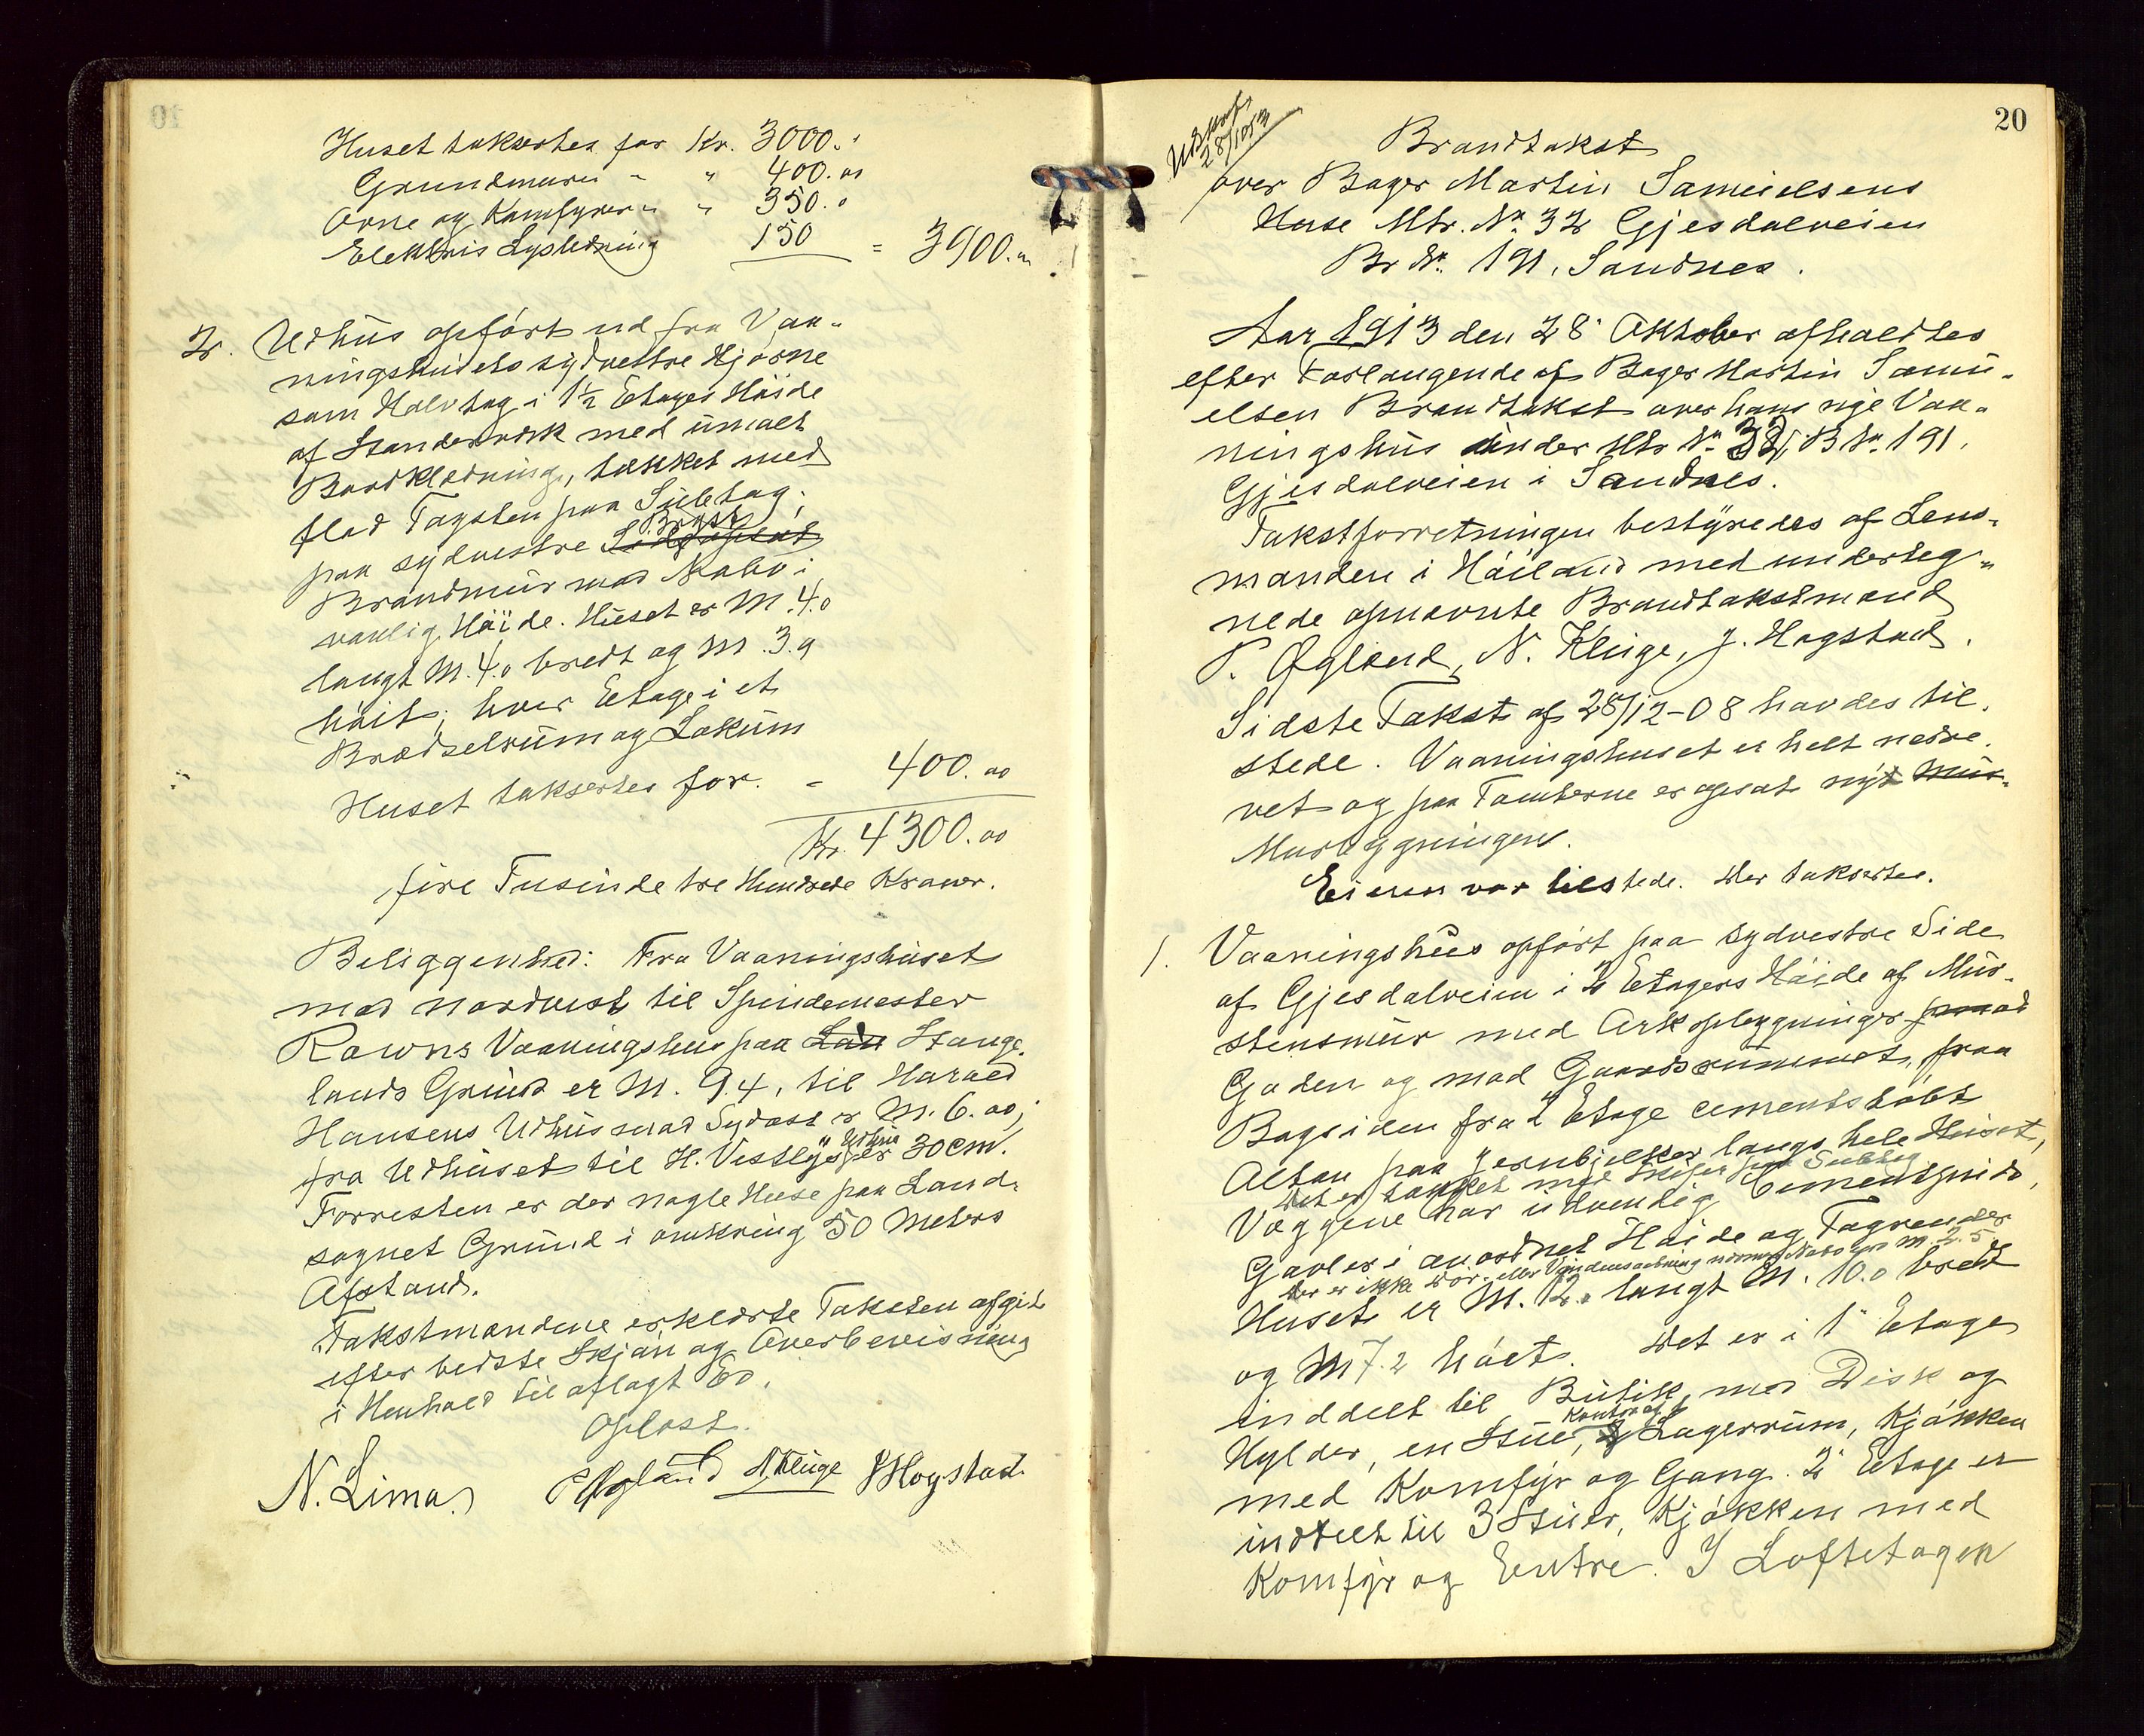 Huset taksertes for Kr. 3000.
Grundmuren " " 400.00
Ovne og Komfyrer " " 350.0
Elektris Lysledning 150 = 3900.00
2. Udhus opført ud fra Vaa-
ningshusets sydvestre Hjørne
som Halvtag i 1½ Etages Høide
af Standerværk med umalt
Bordklædning, tækket med
flad Tagsten paa Subtag.
paa sydvestre Bryst
Brandmur mod Nabo i
vanlig Høide. Huset er M. 4.0
langt M. 4.0 bredt og M. 3.9
høit; hver Etage i et
Brædselrum og Lokum
Huset taksertes for. = 400.00
Kr. 4300.00
fire Tusinde tre Hundrede Kroner.
Beliggenhed: Fra Vaaningshuset
mod nordvest til Spindemester
Rawns Vaaningshus paa Lan Stange-
lands Grund er M. 9.4, til Harald
Hansens Udhus mod Sydost er M. 6.00;
fra Udhuset til H. Vestlys Udhus er 30 cm.
Forresten er der nogle Huse paa Land-
sognet Grund i omkring 50 Meters
Afstand.
Takstmændene erklærte Taksten afgit
efter bedste Skjøn og Overbevisning
i Henhold til aflagt Ed.
Oplæst.
N. Lima P Øgland N Kluge J Hogstad
20
Udskrift
28/10 13
Brandtakst
over Bager Martin Samuelsens
Huse Mtr. Nr. 32 Gjesdalveien
Br Nr. 191, Sandnes.
Aar 1913 den 28 Oktober afholdtes
efter Forlangende af Bager Martin Samu-
elsen Brandtakst over hans nye Vaa-
ningshus under Mtr Nr. 32, B Nr. 191.
Gjesdalveien i Sandnes.
Takstforretningen bestyredes af Lens-
manden i Høiland med underteg-
nede opnævnte Brandtakstmænd
P. Øgland, N. Kluge, J. Hogstad.
Sidste Takst af 28/12-08 havdes til-
stede. Vaaningshuset er helt nedre-
vet og paa Tomterne er opsat nyt Mur-
Murbygningen.
Eieren var tilstede. Der taksertes.
1. Vaaningshus opført paa sydvestre Side
af Gjesdalveien i 2 Etagers Høide af Mur-
stensmur med Arkopbygninger mod
Gaden og mod Gaardsrummet, paa
Bagsiden fra 2 Etage cementstøbt
Altan paa Jernbjelker langs hele Huset,
Det er tækket med Skifer paa Subtag
Væggene har udvendig Cementpuds,
Gavler i anordnet Høide og Tagrender
Der er ikke Dør- eller Vindusaabning nærmere Nabo en M. 2.5
Huset er M. 12.0 langt M. 10.0 bredt
og M 7.2 høit. Det er i 1 Etage
inddelt til Butik med Disk og
Hylder, en Stue, Kontor og Lagerrum, Kjøkken
med Komfyr og Gang. 2 Etage er
inddelt til 3 Stuer, Kjøkken med
Komfyr og Entre. I Loftetagen